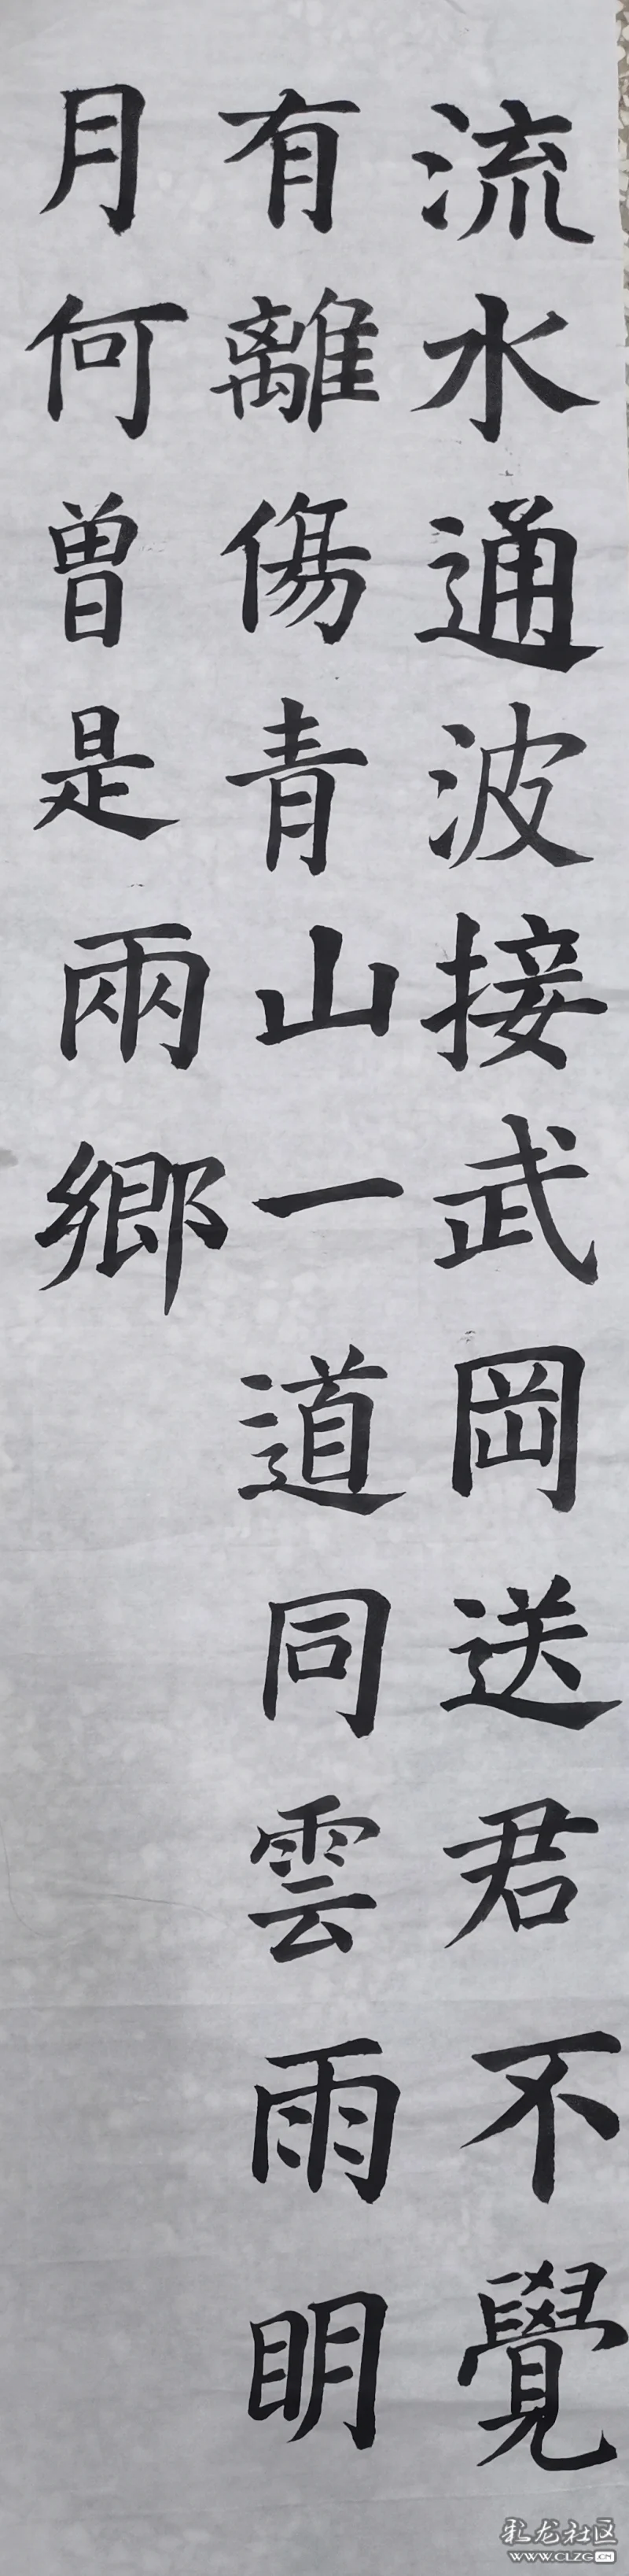 流水通波接武岡送君不覺
有離傷青山一道同雲雨明
月何曾是兩鄉
彩龙社区
WWW.CLZG.CN